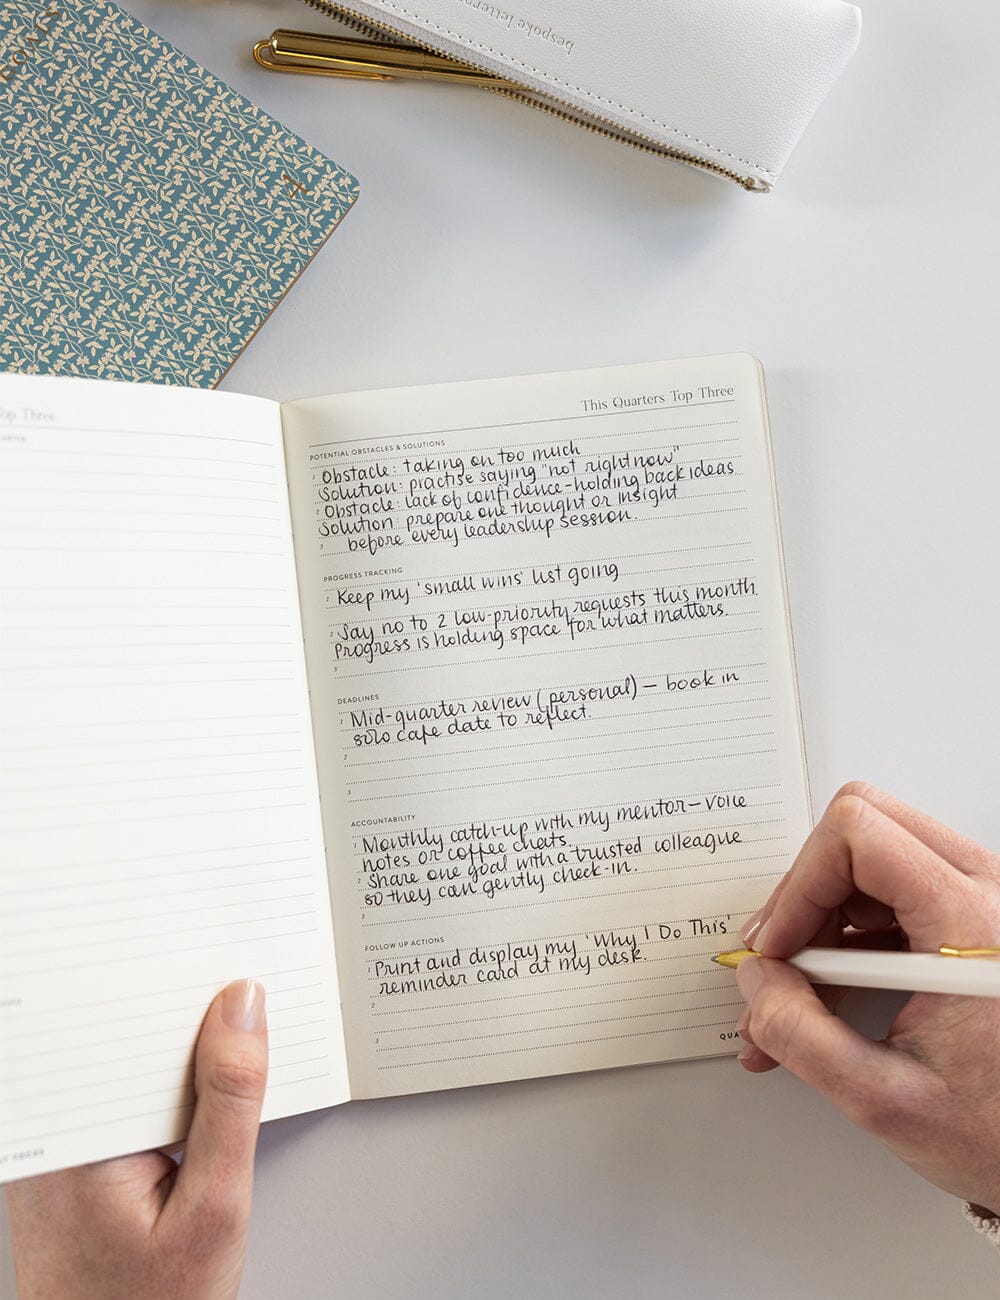 bespoke letterp
4
op Three
This Quarters Top Three
POTENTIAL OBSTACLES & SOLUTIONS
1 Obstacle: taking on too much
Solution: practise saying "not right now"
2 Obstacle: lack of confidence-holding back ideas
Solution: prepare one thought or insight
3 before every leadership session.
PROGRESS TRACKING
1 Keep my 'small wins' list going
2 Say no to 2 low-priority requests this month.
Progress is holding space for what matters.
3
DEADLINES
1 Mid-quarter review (personal) – book in
solo cafe date to reflect.
2
3
ACCOUNTABILITY
1 Monthly catch-up with my mentor – voice
notes or coffee chats.
2 Share one goal with a trusted colleague
so they can gently check-in.
3
FOLLOW UP ACTIONS
1 Print and display my 'Why I Do This'
reminder card at my desk.
2
3
QUA
FOCUS